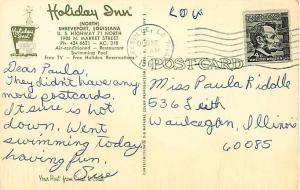 Holiday Inn
(NORTH)
SHREVEPORT, LOUISIANA
U. S. HIGHWAY 71 NORTH
1906 N. MARKET STREET
Ph. 424-6621 - AC. 318
Air-Conditioned - Restaurant
Swimming Pool
Free TV - Free Holiday Reservations
Dear Paula,
They didn't have any
more postcards.
It sure is hot
down. Went
swimming today
having fun.
Your Host from Coast to Coast
POSTCARD
Miss Paula Riddle
Waukegan, Illinois
60085